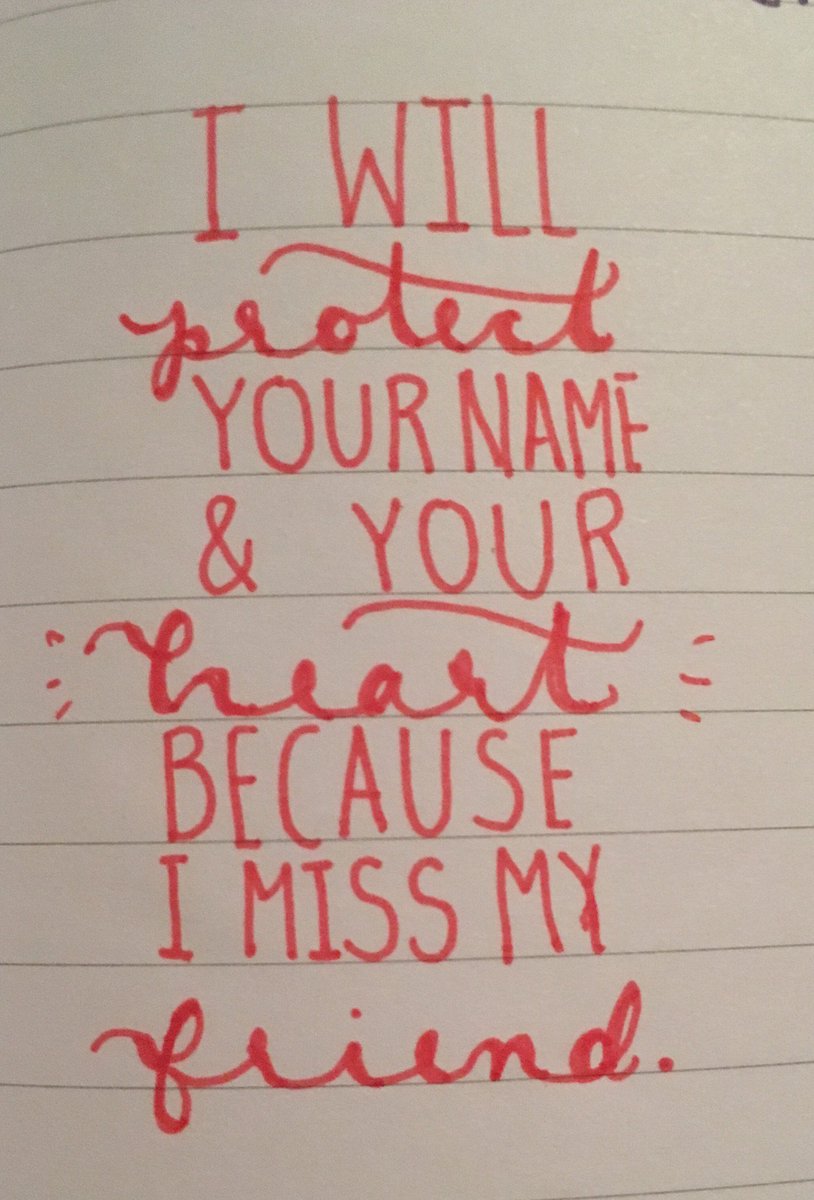 I WILL
protect
YOUR NAME
& YOUR
heart
BECAUSE
I MISS MY
friend.